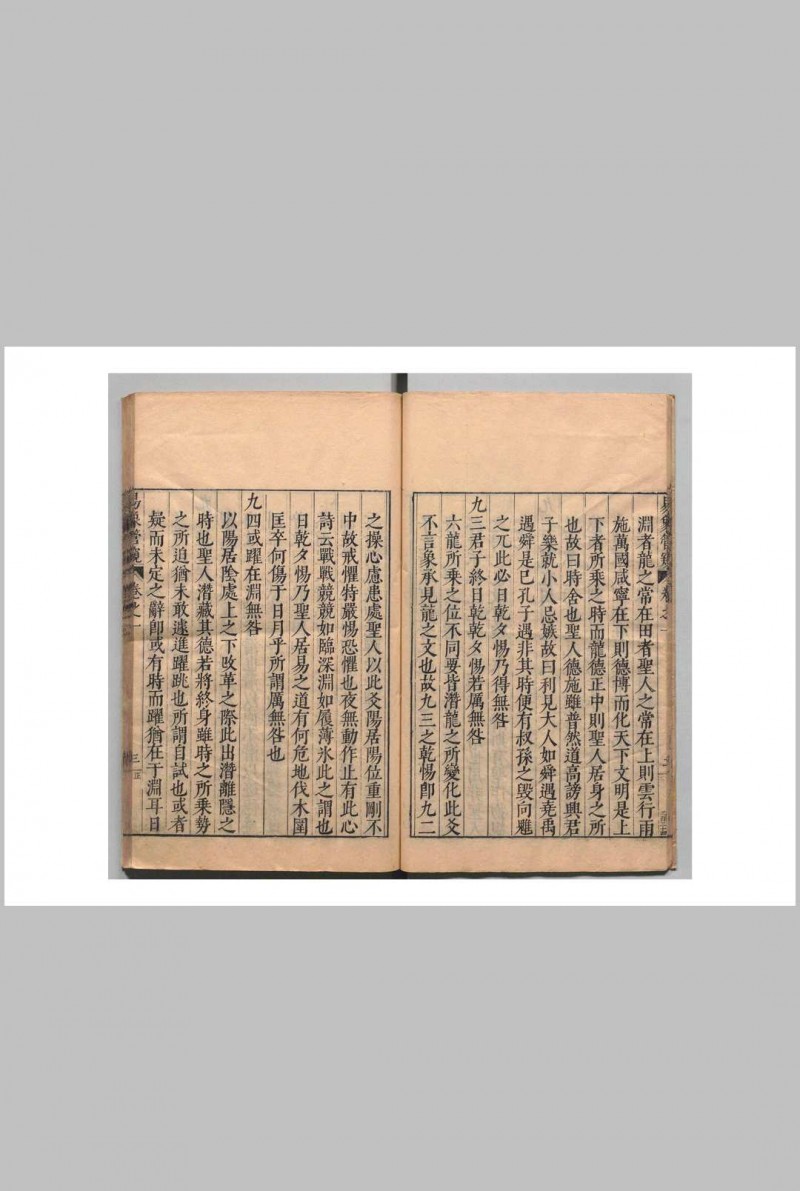 淵者龍之常在田者聖人之常在上則雲行雨
施萬國咸寧在下則德博而化天下文明是上
下者所乘之時而龍德正中則聖人居身之所
也故曰時舍也聖人德施雖普然道高謗興君
子樂就小人忌嫉故曰利見大人如舜遇堯禹
遇舜是已孔子遇非其時便有叔孫之毀向魋
之兀此必日乾夕惕乃得無咎
九三君子終日乾乾夕惕若厲無咎
六龍所乘之位不同要皆潛龍之所變化此爻
不言象承見龍之文也故九三之乾惕卽九二
之操心慮患處聖人以此爻陽居陽位重剛不
中故戒懼特嚴惕恐懼也夜無動作止有此心
詩云戰戰兢兢如臨深淵如履薄氷此之謂也
日乾夕惕乃聖人居易之道有何危地伐木圍
匡卒何傷于日月乎所謂厲無咎也
九四或躍在淵無咎
以陽居陰處上之下攺革之際此出潛離隱之
時也聖人潛藏其德若將終身雖時之所乘勢
之所迫猶未敢遽進躍跳也所謂自試也或者
疑而未定之辭卽或有時而躍猶在于淵耳日
易象管窺 卷之一 三